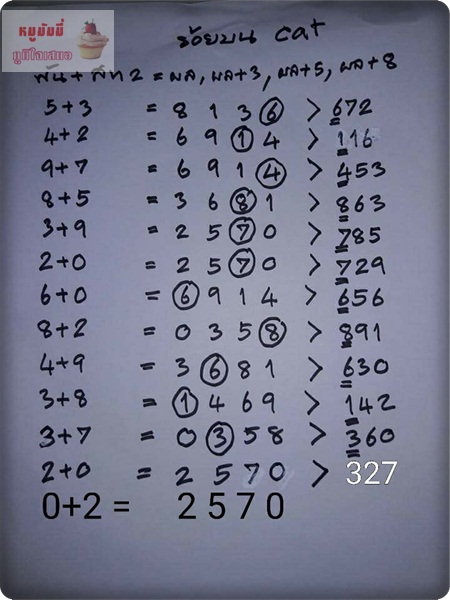 ร้อยบน cat
= ผล, ผล+3, ผล+5, ผล+8
5+3 = 8 1 3 6 > 672
4+2 = 6 9 1 4 > 116
9+7 = 6 9 1 4 > 453
8+5 = 3 6 8 1 > 863
3+9 = 2 5 7 0 > 785
2+0 = 2 5 7 0 > 729
6+0 = 6 9 1 4 > 656
8+2 = 0 3 5 8 > 891
4+9 = 3 6 8 1 > 630
3+8 = 1 4 6 9 > 142
3+7 = 0 3 5 8 > 360
2+0 = 2 5 7 0 > 327
0+2 = 2 5 7 0